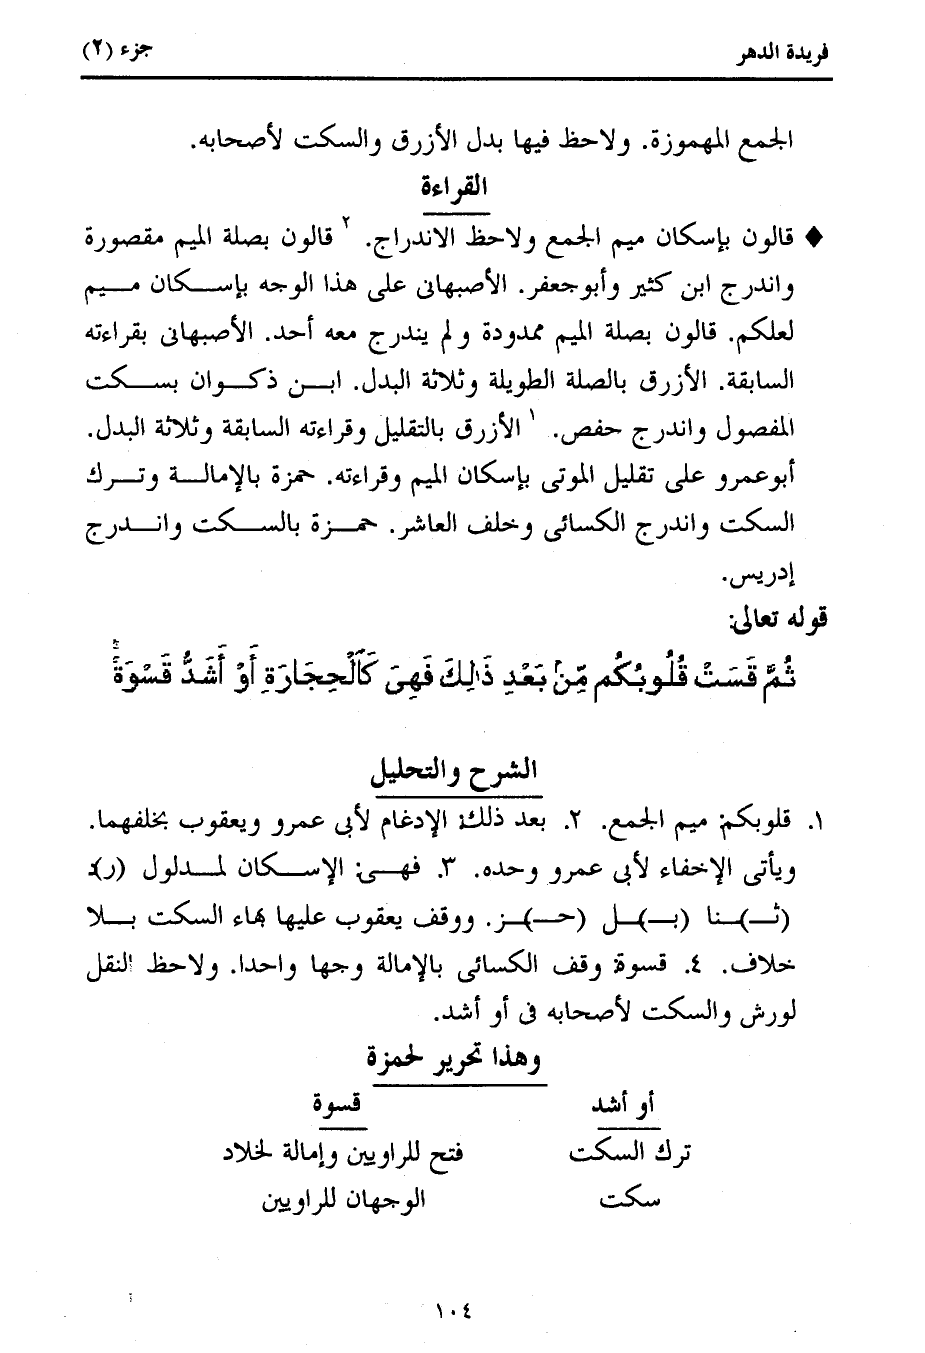 فريدة الدهر جزء (٢)
الجمع المهموزة. ولاحظ فيها بدل الأزرق والسكت لأصحابه.
القراءة
♦ قالون بإسكان ميم الجمع ولاحظ الاندراج. ٢ قالون بصلة الميم مقصورة
واندرج ابن كثير وأبوجعفر. الأصبهانى على هذا الوجه بإسكان ميم
لعلكم. قالون بصلة الميم ممدودة و لم يندرج معه أحد. الأصبهانى بقراءته
السابقة. الأزرق بالصلة الطويلة وثلاثة البدل. ابن ذكوان بسكت
المفصول واندرج حفص. ١ الأزرق بالتقليل وقراءته السابقة وثلاثة البدل.
أبوعمرو على تقليل الموتى بإسكان الميم وقراءته. حمزة بالإمالة وترك
السكت واندرج الكسائى وخلف العاشر. حمزة بالسكت واندرج
إدريس.
قوله تعالى:
ثُمَّ قَسَتْ قُلُوبُكُم مِّنۢ بَعْدِ ذَٰلِكَ فَهِىَ كَٱلْحِجَارَةِ أَوْ أَشَدُّ قَسْوَةًۚ
الشرح والتحليل
١. قلوبكم: ميم الجمع. ٢. بعد ذلك: الإدغام لأبى عمرو ويعقوب بخلفهما.
ويأتى الإخفاء لأبى عمرو وحده. ٣. فهى: الإسكان لمدلول (ر)د
(ثـ)ـنا (بـ)ـل (حـ)ـز. ووقف يعقوب عليها بهاء السكت بلا
خلاف. ٤. قسوة: وقف الكسائى بالإمالة وجها واحدا. ولاحظ النقل
لورش والسكت لأصحابه فى أو أشد.
وهذا تحرير لحمزة
أو أشد قسوة
ترك السكت فتح للراويين وإمالة لخلاد
سكت الوجهان للراويين
١٠٤